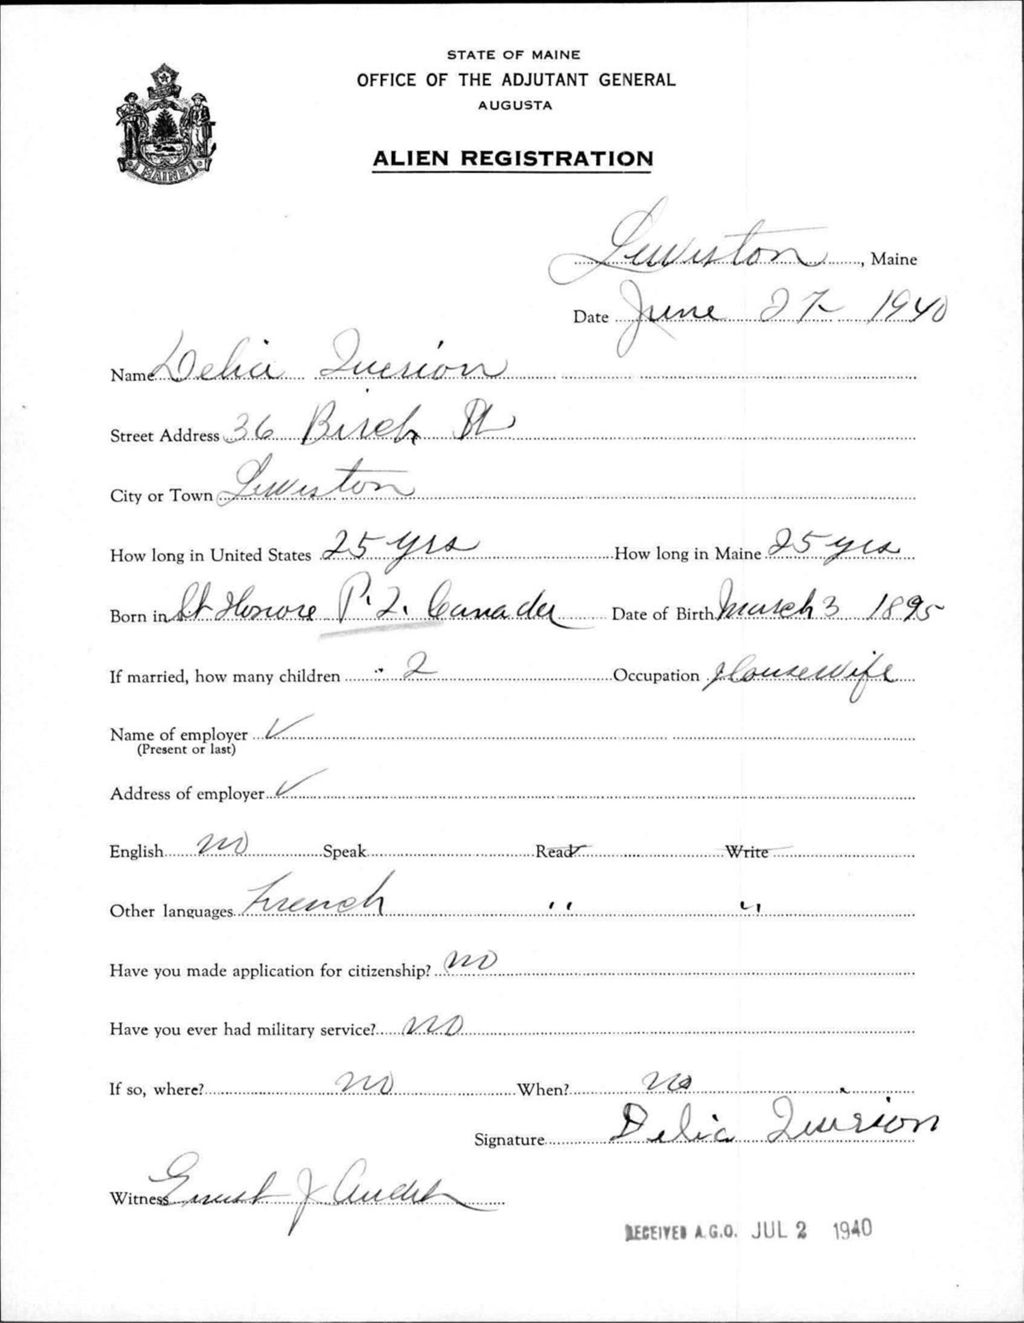 STATE OF MAINE
OFFICE OF THE ADJUTANT GENERAL
AUGUSTA
ALIEN REGISTRATION
MAINE
Lewiston, Maine
Date June 27 1940
Name Delia
Street Address 36 Birch St
City or Town Lewiston
How long in United States 25 yrs How long in Maine 25 yrs
Born in St Honore P. Q. Canada Date of Birth March 3 1895
If married, how many children 2 Occupation Housewife
Name of employer ✓
(Present or last)
Address of employer ✓
English no Speak Read Write
Other languages French " "
Have you made application for citizenship? no
Have you ever had military service? no
If so, where? no When? no
Signature Delia
Witness Ernest J
RECEIVED A.G.O. JUL 2 1940